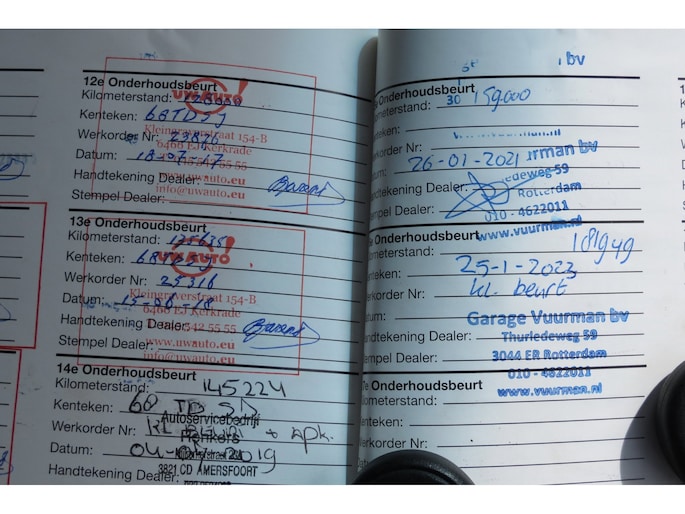 12e Onderhoudsbeurt
Kilometerstand:
Kenteken: 68TDSJ
Werkorder Nr: 23821
Datum: 18-07-17
Handtekening Dealer:
Stempel Dealer:
UW AUTO!
Kleingraverstraat 154-B
6466 EJ Kerkrade
www.uwauto.eu
info@uwauto.eu
13e Onderhoudsbeurt
Kilometerstand: 135635
Kenteken: 68TDSJ
Werkorder Nr: 25316
Datum:
Handtekening Dealer:
Stempel Dealer:
UW AUTO!
Kleingraverstraat 154-B
6466 EJ Kerkrade
542 55 55
www.uwauto.eu
info@uwauto.eu
14e Onderhoudsbeurt
Kilometerstand: 145224
Kenteken: 68
Werkorder Nr: KL + apk.
Datum: 2019
Handtekening Dealer:
Autoservicebedrijf
3821 CD AMERSFOORT
bv
Onderhoudsbeurt
Kilometerstand: 159.000
30
Kenteken:
Werkorder Nr:
Datum: 26-01-2021
Handtekening Dealer:
Stempel Dealer:
urman bv
edeweg 59
Rotterdam
010 - 4622011
www.vuurman.nl
Onderhoudsbeurt
Kilometerstand: 181949
Kenteken: 25-1-2023
Werkorder Nr: kl. beurt
Datum:
Handtekening Dealer:
Stempel Dealer:
Garage Vuurman bv
Thurledeweg 59
3044 ER Rotterdam
010 - 4622011
www.vuurman.nl
Onderhoudsbeurt
Kilometerstand:
Kenteken:
Werkorder Nr:
Datum:
Handtekening Dealer: